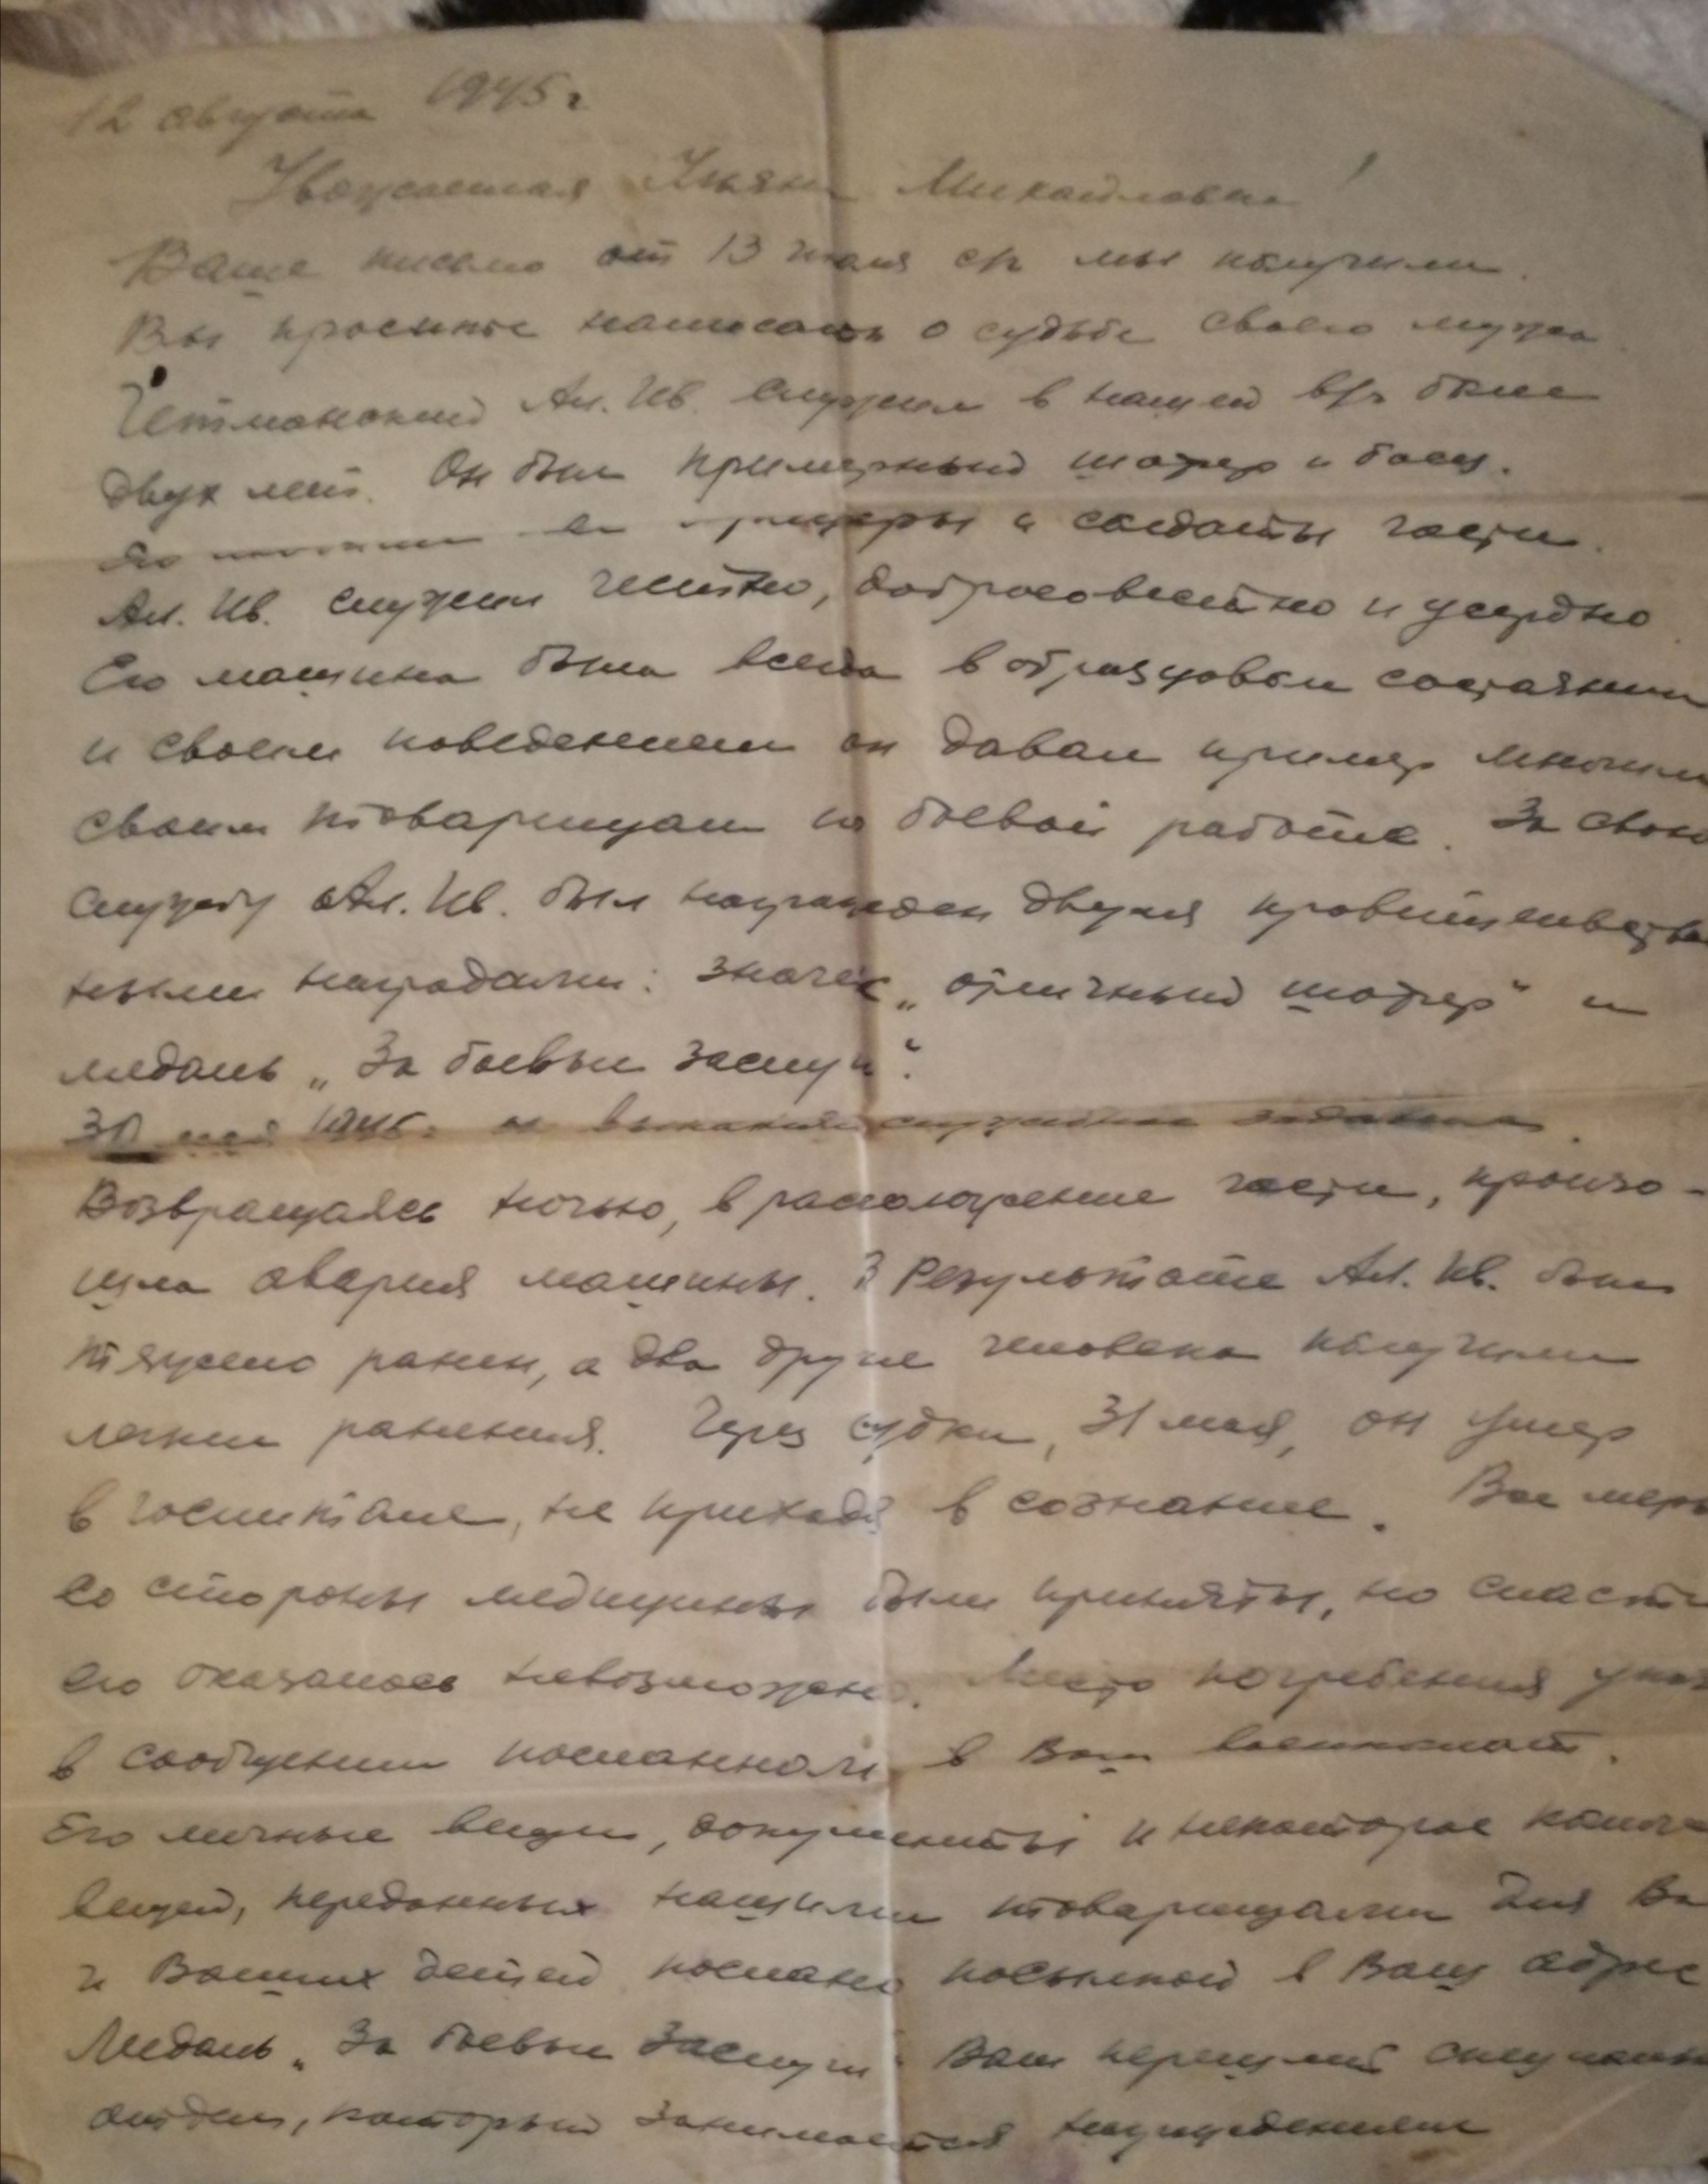 12 августа 1945 г
Уважаемая Ульяна Михайловна!
Ваше письмо от 13 июля с/г мы получили.
Вы просите написать о судьбе своего мужа.
Ал. Ив. служил в нашей в/ч более
двух лет. Он был примерный шофер и боец.
офицеры и солдаты части.
Ал. Ив. служил честно, добросовестно и усердно.
Его машина была всегда в образцовом состоянии
и своим поведением он давал пример многим
своим товарищам по боевой работе. За свою
службу Ал. Ив. был награжден двумя правительствен
ными наградами: значек „отличный шофер“ и
медаль „За боевые заслуги“.
30 мая 1945 г. он выполнял служебное задание.
Возвращаясь ночью, в расположение части, произо-
шла авария машины. В результате Ал. Ив. был
тяжело ранен, а два другие человека получили
легкие ранения. Через сутки, 31 мая, он умер
в госпитале, не приходя в сознание. Все меры
со стороны медицины были приняты, но спасти
его оказалось невозможно. Место погребения
в сообщении посланном в Ваш военкомат.
Его личные вещи, документы и некоторое
вещей, переданных нашими товарищами для
и Ваших детей послано посылкой в Ваш адрес
Медаль „За боевые заслуги“ Вам перешлет
отдел, который занимается награждениями